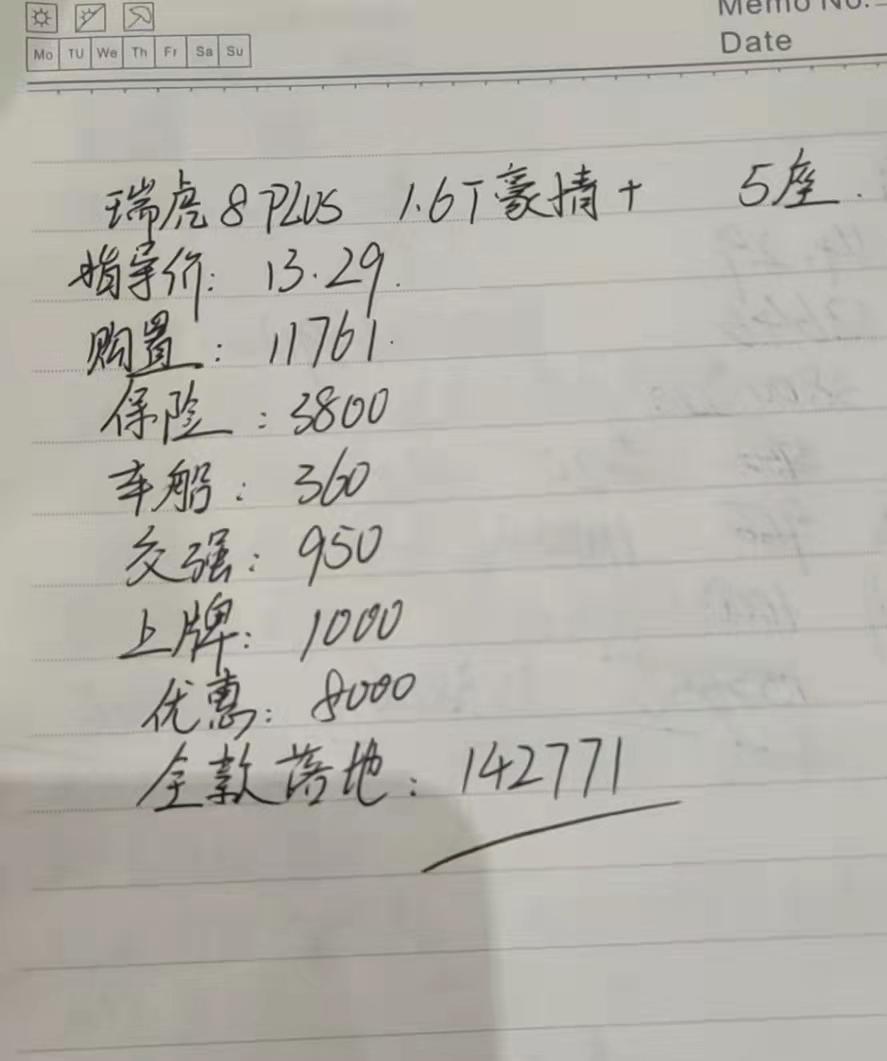 Memo No.
Date
Mo TU We Th Fr Sa Su
瑞虎8 PLUS 1.6T豪情+ 5座.
指导价: 13.29.
购置: 11761.
保险: 3800
车船: 360
交强: 950
上牌: 1000
优惠: 8000
全款落地: 142771